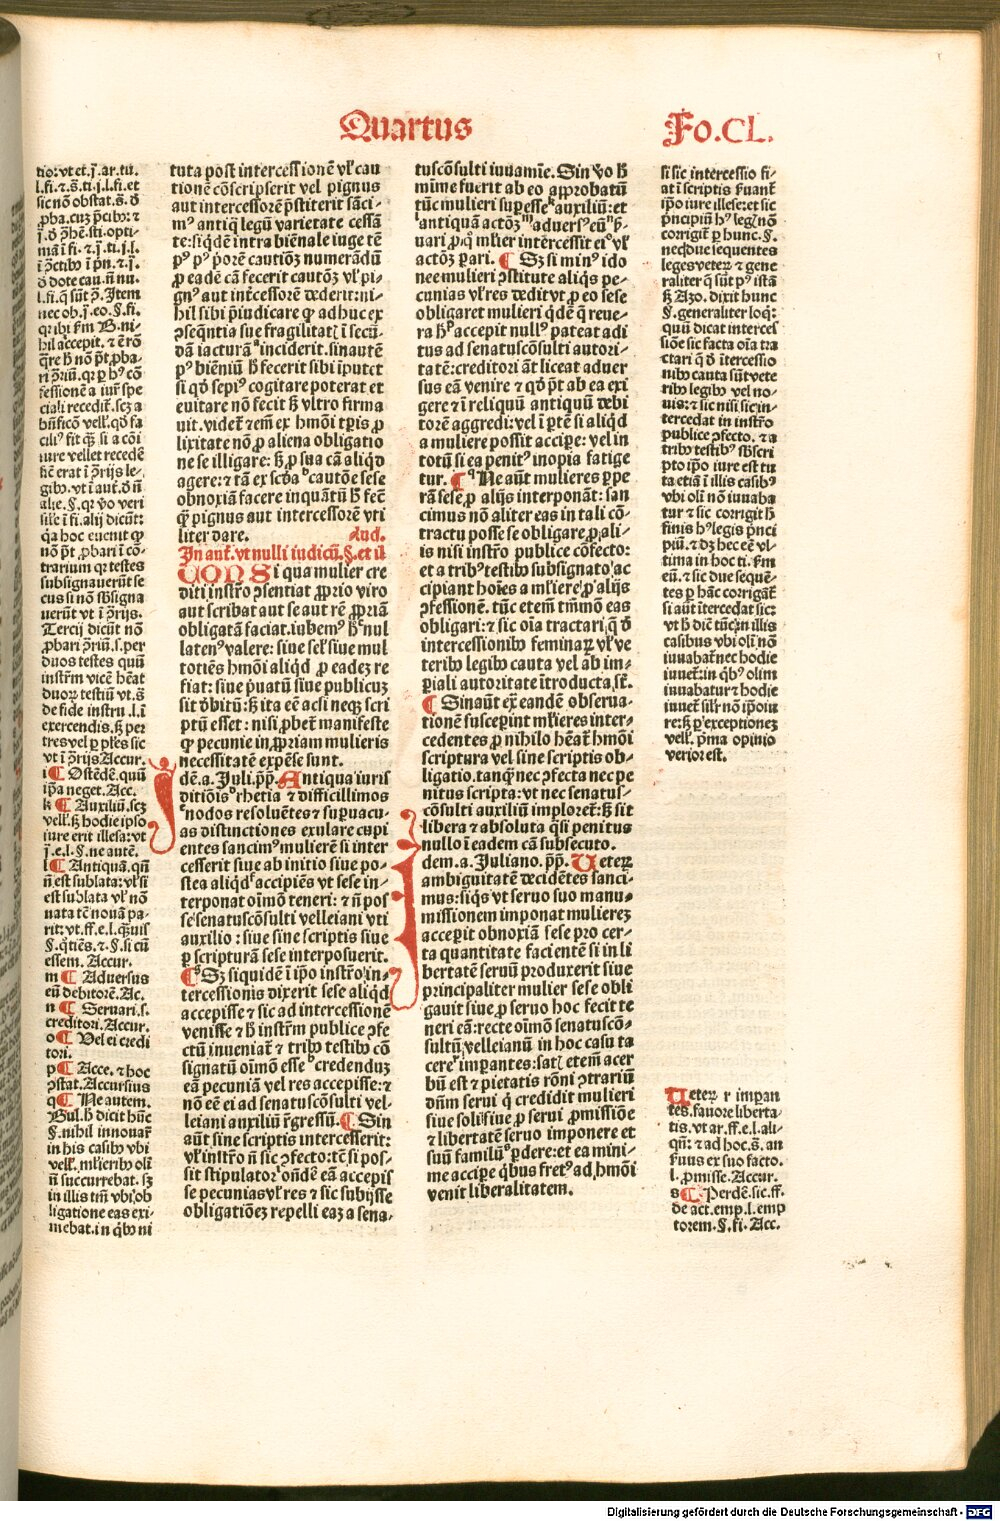 Quartus
Fo.CL.
tio: vt et. j̄. ar. tu.
l. fi. ⁊. s̄. ti. j. l. fi. et
sic nō obstat. s̄. ð
nec ob. j̄. eo. §. fi.
uerūt vt ī p̄rijs.
Tercij dicūt nō
duos testes quū
exercendis. ſꝫ per
tres vel ꝑ ples sic
vt ī p̄rijs Accur.
i ¶ Ostēdē. quū
ip̄a neget. Acc.
k ¶ Auxiliū. scꝫ
vell. ſꝫ hodie ipso
iure erit illesa: vt
j̄. e. l. §. ne autē.
l ¶ Antiquā. qn̄
n̄ est sublata: vl̓ si
est sublata vl̓ nō
nata tē nouā pa-
rit: vt. ff. e. l. q̄uis
§. q̄tiēs. ⁊. §. si cū
essem. Accur.
m ¶ Aduersus
eū debitorē. Ac.
n ¶ Seruari. s.
creditori. Accur.
o ¶ Vel ei credi
tori.
p ¶ Acce. ⁊ hoc
ꝯstat. Accursius
q ¶ Ne autem.
Bul. h̄ dicit hūc
§. nihil innouar̄
in his casibꝰ vbi
vell. ml̓ieribꝰ oli
n̄ succurrebat. sꝫ
in illis tm̄ vbi ob
ligatione eas exi-
mebat. in q̄bꝰ ni
tuta post intercessionē vl̓ cau
tionē cōscripserit vel pignus
aut intercessorē p̄stiterit sāci-
mꝰ antiq̄ legū varietate cessā
te: siq̄dē intra biēnale iuge tē
pꝰ pꝰ p̄orē cautiōꝫ numerādū
ꝓ eadē cā fecerit cautōꝫ vl̓ pi-
gnꝰ aut int̄cessorē dederit: ni-
hil sibi p̄iudicare ꝙ adhuc ex
ꝯseq̄ntia sue fragilitat̄ ī secū-
dā iacturā inciderit. sin autē
pꝰ biēniū h̄ fecerit sibi īputet
si qð sepiꝰ cogitare poterat et
euitare nō fecit ſꝫ vltro firma
uit. videt̄ em̄ ex hm̄oi tꝑis ꝓ
lixitate nō ꝓ aliena obligatio
ne se illigare: ſꝫ ꝓ sua cā aliqð
agere: ⁊ tā ex scða cautōe sese
obnoxiā facere inquātū h̄ fec̄
ꝙ̄ pignus aut intercessorē vti
liter dare. Aud.
In aut̄. vt nulli iudicū. §. et il
CONS i qua mulier cre
diti instr̄o ꝯsentiat ꝓprio viro
aut scribat aut se aut rē ꝓpriā
obligatā faciat. iubemꝰ h̄ nul
latenꝰ valere: siue sel̓ siue mul
totiēs hm̄oi aliqð ꝓ eadeꝫ re
fiat: siue p̄uatū siue publicuꝫ
sit dꝫbitū: ſꝫ ita eē acsi neqꝫ scri
ptū esset: nisi ꝓbet̄ manifeste
ꝙ pecunie in ꝓpriam mulieris
necessitatē expēse sunt.
Idē. a. Juli. p̄p̄. Antiqua iuris
ditiōis rhetia ⁊ difficillimos
nodos resoluētes ⁊ suꝑuacu-
as distinctiones exulare cupi
entes sancimꝰ mulierē si inter
cesserit siue ab initio siue po-
stea aliqð accipiēs vt sese in-
terponat oīmō teneri: ⁊ n̄ pos
se senatuscōsulti velleiani vti
auxilio: siue sine scriptis siue
ꝑ scripturā sese interposuerit.
¶ Sꝫ siquidē ī ip̄o instr̄o in-
tercessionis dixerit sese aliqð
accepisse ⁊ sic ad intercessionē
venisse ⁊ h̄ instr̄m publice ꝯfe
ctū inueniat̄ ⁊ tribꝰ testibꝰ cō
signatū oīmō esse credenduꝫ
eā pecuniā vel res accepisse: ⁊
nō eē ei ad senatuscōsulti vel-
leiani auxiliū r̄gressū. ¶ Sin
aūt sine scriptis intercesserit:
vl̓ instr̄o n̄ sic ꝯfecto: tē si pos-
sit stipulator ondē eā accepis
se pecunias vl̓ res ⁊ sic subijsse
obligatiōeꝫ repelli eaꝫ a sena-
tuscōsulti iuuamīe. Sin v̄o h̄
mīme fuerit ab eo approbatū
tūc mulieri suꝑesse auxiliū: et
antiquā actōꝫ aduersꝰ eū p̄-
uari ꝓ q̄ ml̓ier intercessit ei vl̓
actōꝫ ꝑari. ¶ Sꝫ si minꝰ ido
nee mulieri ꝯstitute aliq̄s pe-
cunias vl̓ res dedit vt ꝓ eo sese
obligaret mulieri q̄dē q̄ reue-
ra h̄ accepit nullꝰ pateat adi
tus ad senatuscōsulti autori-
tatē: creditori āt liceat aduer
sus eā venire ⁊ qð p̄t ab ea exi
gere ⁊ ī reliquū antiquū debi
torē aggredi: vel ī ꝑtē si aliqð
a muliere possit accipe: vel in
totū si ea penitꝰ inopia fatige
tur. ¶ Ne aūt mulieres ꝑpe
rā sese ꝓ alijs interponāt: san
cimus nō aliter eas in tali cō-
tractu posse se obligare ꝓ ali-
is nisi instr̄o publice cōfecto:
et a tribꝰ testibꝰ subsignato ac
cipiant hoīes a ml̓iere ꝓ alijs
ꝯfessionē. tūc etem̄ tm̄mō eas
obligari: ⁊ sic oīa tractari q̄ ð
intercessionibꝰ feminaꝝ vl̓ ve
teribꝰ legibꝰ cauta vel ab im-
ꝑiali autoritate ītroducta sūt.
¶ Sinaūt ex̄ eandē obserua-
tionē suscepint ml̓ieres inter-
cedentes ꝓ nihilo hēat̄ hm̄oi
scriptura vel sine scriptis ob-
ligatio. tanq̄ nec ꝯfecta nec pe
nitus scripta: vt nec senatus-
cōsulti auxiliū imploret̄: ſꝫ sit
libera ⁊ absoluta q̄si penitus
nullo ī eadem cā subsecuto.
Idem. a. Juliano. p̄p̄. Veterꝫ
ambiguitatē decidētes sanci-
mus: siq̄s vt seruo suo manu-
missionem imponat mulierez
acceꝑit obnoxiā sese pro cer-
ta quantitate facientē si in li
bertatē seruū produxerit siue
principaliter mulier sese obli
gauit siue ꝓ seruo hoc fecit te
neri eā: recte oīmō senatuscō-
sultū velleianū in hoc casu ta
cere imꝑantes: sat̄ etem̄ acer
bū est ⁊ pietatis rōni ꝯtrariū
dn̄m serui q̄ credidit mulieri
siue soli siue ꝓ serui ꝓmissiōe
⁊ libertatē seruo imponere et
suū familū ꝑdere: et ea mini-
me accipe q̄bus fretꝰ ad hm̄oi
venit liberalitatem.
si sic intercessio fi-
at ī scriptis s̄uant̄
ip̄o iure illese: et sic
legesveterꝫ ⁊ gene
§. generaliter loq̄:
quū dicat interces
siōe sic facta oīa tra
ctari q̄ ð ītercessio
nibꝰ cauta sūt vete
ribꝰ legibꝰ vel no-
uis: ⁊ sic nisi sic in-
tercedat in instr̄o
publice ꝯfecto. ⁊ a
tribꝰ testibꝰ sb̄scri
pto ip̄o iure est tu
ta etiā ī illis casibꝰ
vbi oli nō iuuaba
tur ⁊ sic corrigit h̄
finis hꝰ legis p̄nci
piū. ⁊ dꝫ hec eē vl-
tima in hoc ti. s̄m
eū. ⁊ sic due sequē-
tes ꝑ hāc corrigūt̄
si aūt ītercedat sic:
vt h̄ diē tūc in illis
casibus vbi oli nō
iuuabat̄ nec hodie
iuuet̄: in q̄bꝰ olim
iuuabatur ⁊ hodie
iuuet̄ sil̓r nō ip̄o iu
re: ſꝫ ꝑ exceptioneꝫ
vell. p̄ma opinio
verior est.
Veterꝫ r imꝑan
tes. fauore liberta-
tis. vt ar. ff. e. l. ali-
qn̄: ⁊ ad hoc. s̄. an
s̄uus ex suo facto.
l. ꝓmisse. Accur.
s ¶ Perdē. sic. ff.
de act. emp. l. emp
torem. §. fi. Acc.
Digitalisierung gefördert durch die Deutsche Forschungsgemeinschaft - DFG